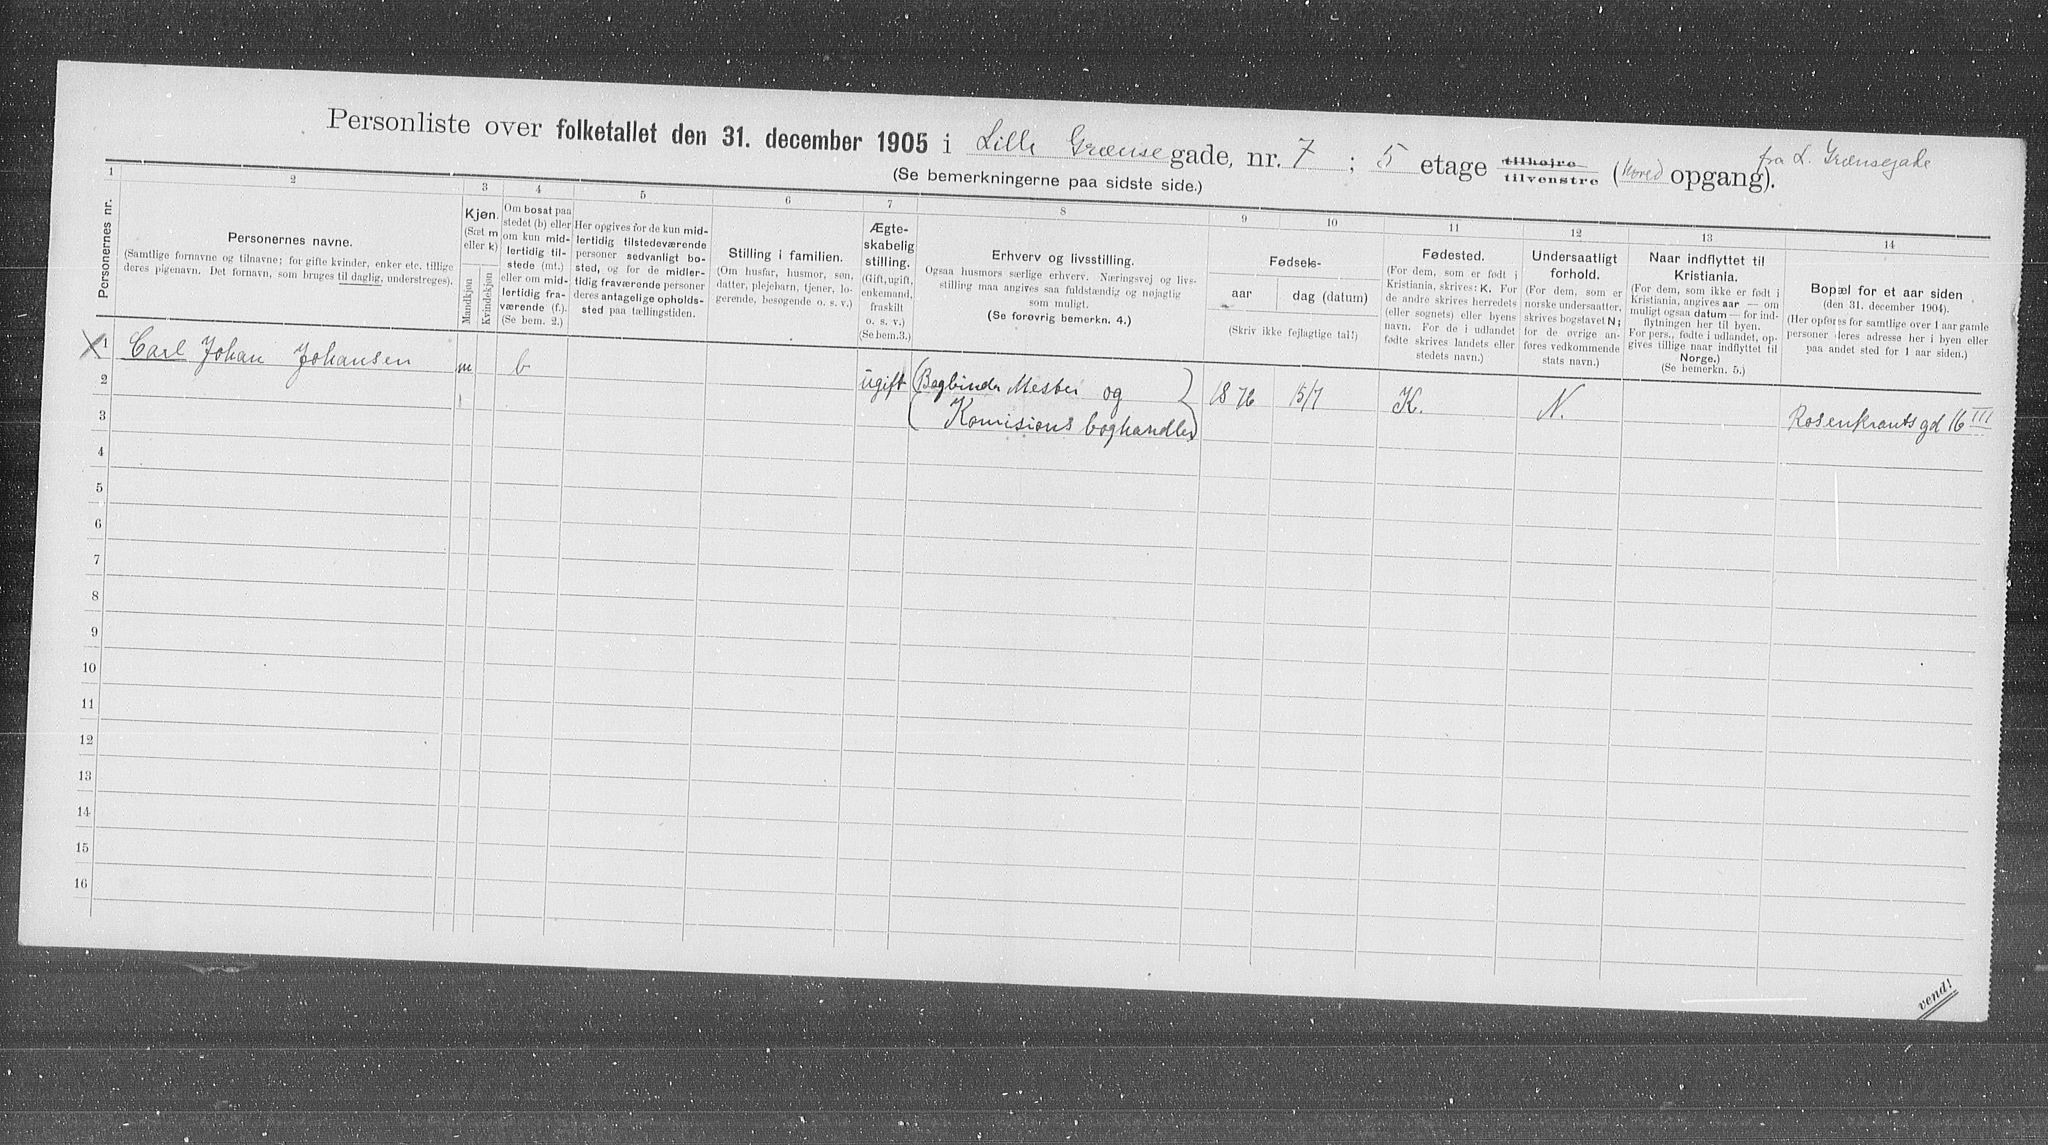 Personliste over folketallet den 31. december 1905 i Lille Grænsegade, nr. 7 ; 5 etage tilhøire tilvenstre (Hoved opgang).
fra L. Grænsegade
(Se bemerkningerne paa sidste side.)
1 2 3 4 5 6 7 8 9 10 11 12 13 14
Personernes nr.
Personernes navne.
(Samtlige fornavne og tilnavne; for gifte kvinder, enker etc. tillige
deres pigenavn. Det fornavn, som bruges til daglig, understreges).
Kjøn.
(Sæt m
eller k)
Mandkjøn
Kvindekjøn
Om bosat paa
stedet (b) eller
om kun mid-
lertidig til-
stede (mt.)
eller om mid-
lertidig fra-
værende (f.).
(Se bem. 2.)
Her opgives for de kun mid-
lertidig tilstedeværende
personer sedvanligt bo-
sted, og for de midler-
tidig fraværende personer
deres antagelige opholds-
sted paa tællingstiden.
Stilling i familien.
(Om husfar, husmor, søn,
datter, plejebarn, tjener, lo-
gerende, besøgende o. s. v.)
Ægte-
skabelig
stilling.
(Gift, ugift,
enkemand,
fraskilt
o. s. v.)
(Se bem.3.)
Erhverv og livsstilling.
Ogsaa husmors særlige erhverv. Næringsvej og livs-
stilling maa angives saa fuldstændig og nøjagtig
som muligt.
(Se forøvrig bemerkn. 4.)
Fødsels-
aar
dag (datum)
(Skriv ikke fejlagtige tal!)
Fødested.
(For dem, som er født i
Kristiania, skrives: K. For
de andre skrives herredets
(eller sognets) eller byens
navn. For de i udlandet
fødte skrives landets eller
stedets navn.)
Undersaatligt
forhold.
(For dem, som er
norske undersaatter,
skrives bogstavet N;
for de øvrige an-
føres vedkommende
stats navn.)
Naar indflyttet til
Kristiania.
(For dem, som ikke er født i
Kristiania, angives aar — om
muligt ogsaa datum — for ind-
flytningen her til byen.
For pers., fødte i udlandet, op-
gives tillige naar indflyttet til
Norge.)
(Se bemerkn. 5.)
Bopæl for et aar siden
(den 31. december 1904).
(Her opføres for samtlige over 1 aar gamle
personer deres adresse her i byen eller
paa andet sted for 1 aar siden.)
1 Carl Johan Johansen m b ugift (Bogbinder Mester og 1876 15/7 K. N. Rosenkrantsgd 16 III
Komisions boghandler)
2
3
4
5
6
7
8
9
10
11
12
13
14
15
16
vend!